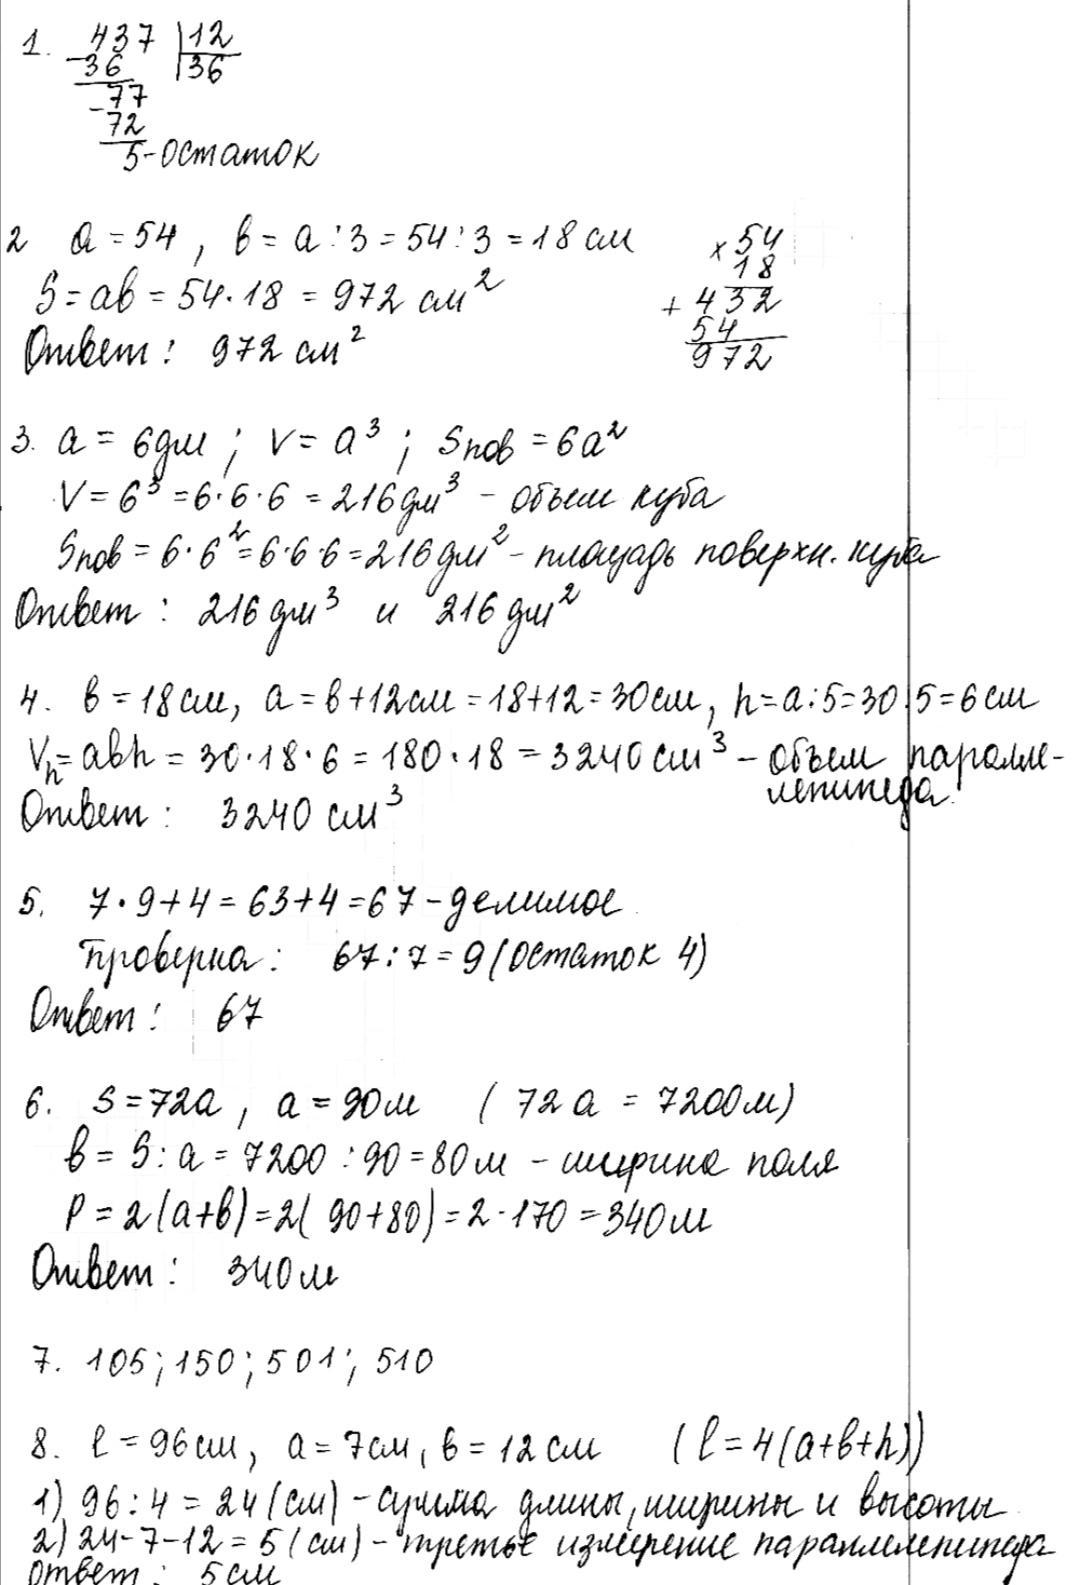 1. 437 |12
-36 |36
-77
72
5-остаток
2 a = 54, в = a : 3 = 54 : 3 = 18 см
×54
18
S = aв = 54·18 = 972 см²
+ 432
54
972
Ответ: 972 см²
3. a = 6дм; V = a³; Sпов = 6a²
V = 6³ = 6·6·6 = 216 дм³ - объем куба
Sпов = 6·6² = 6·6·6 = 216 дм² - площадь поверхн. куба
Ответ: 216 дм³ и 216 дм²
4. в = 18см, a = в+12см = 18+12 = 30см, h = a:5 = 30:5 = 6 см
Vh = aвh = 30·18·6 = 180·18 = 3240 см³ - объем паралле-
лепипеда.
Ответ: 3240 см³
5. 7·9+4 = 63+4 = 67 - делимое
Проверка: 67:7 = 9 (остаток 4)
Ответ: 67
6. S = 72а, a = 90м (72 а = 7200м)
в = S:a = 7200:90 = 80м - ширина поля
P = 2(a+в) = 2(90+80) = 2·170 = 340м
Ответ: 340м
7. 105; 150; 501; 510
8. l = 96см, a = 7см, в = 12см (l = 4(a+в+h))
1) 96:4 = 24 (см) - сумма длины, ширины и высоты
2) 24-7-12 = 5 (см) - третье измерение параллелепипеда
Ответ: 5см